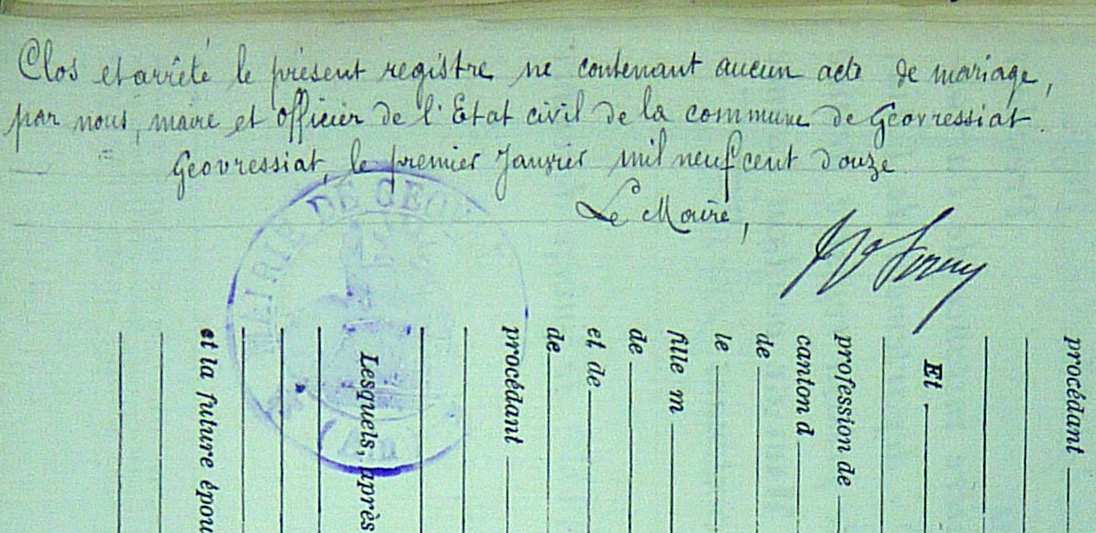 Clos et arrêté le présent registre ne contenant aucun acte de mariage,
par nous, maire et Officier de l'Etat civil de la commune de Géovressiat.
Géovressiat, le premier Janvier mil neuf cent douze
Le Maire,
MAIRIE DE GEO
(Ain)
procédant
Et
profession de
canton d
de
le
fille m
de
et de
de
procédant
Lesquels, après
et la future épou